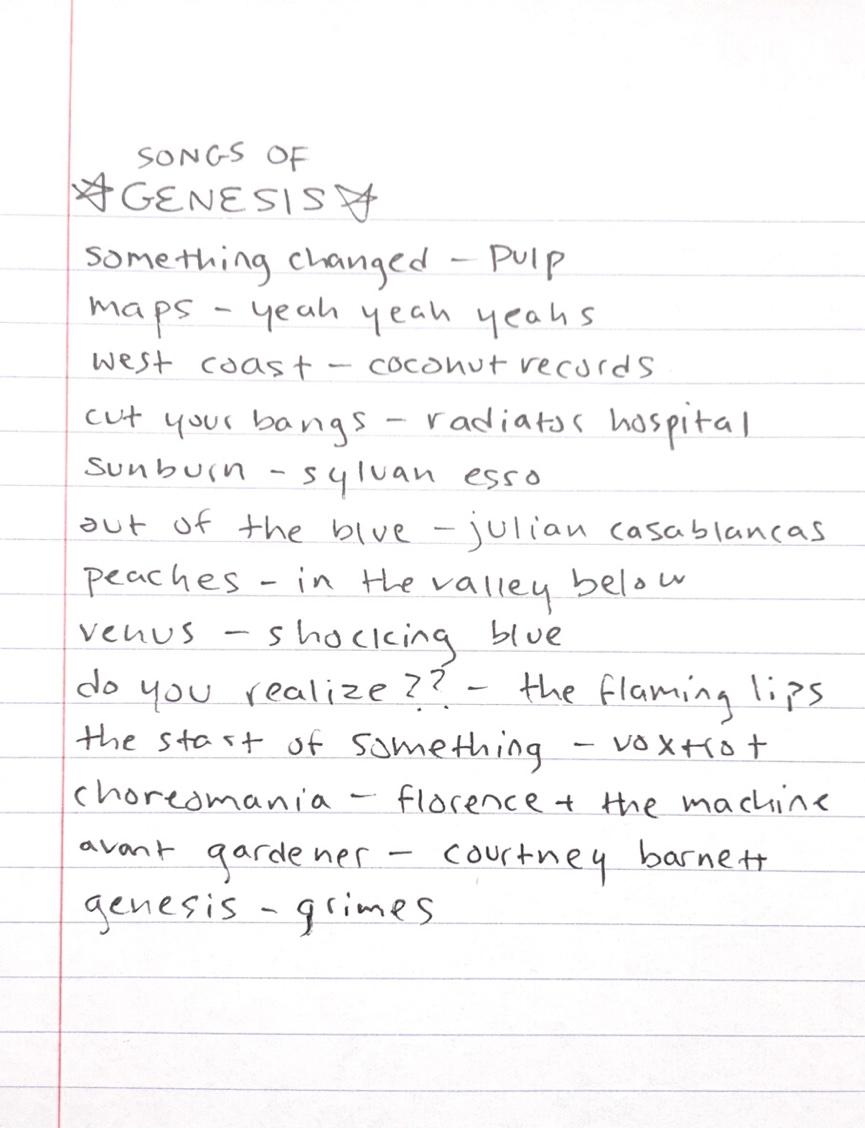 SONGS OF
☆GENESIS☆
something changed - Pulp
maps - yeah yeah yeahs
west coast - coconut records
cut your bangs - radiator hospital
sunburn - sylvan esso
out of the blue - julian casablancas
peaches - in the valley below
venus - shocking blue
do you realize?? - the flaming lips
the start of something - voxtrot
choreomania - florence + the machine
avant gardener - courtney barnett
genesis - grimes